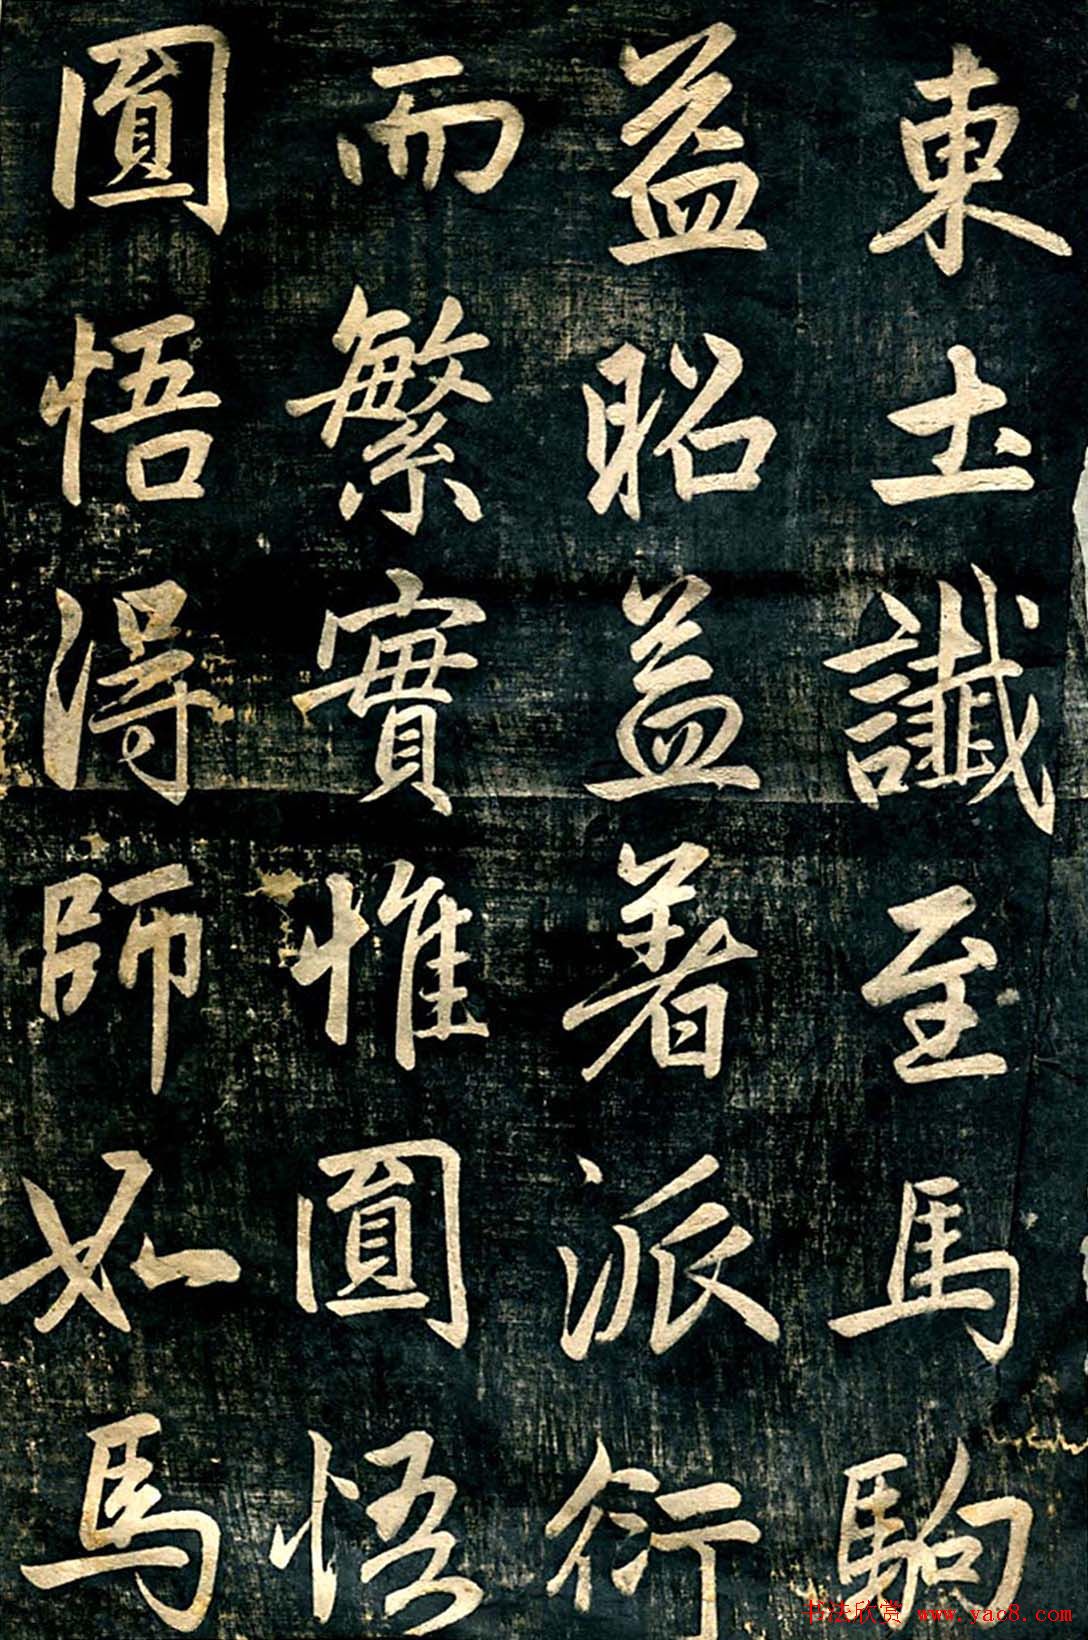 東土讖至馬駒
益昭益著派衍
而繁實惟圓悟
圓悟得師如馬
书法欣赏 www.yac8.com